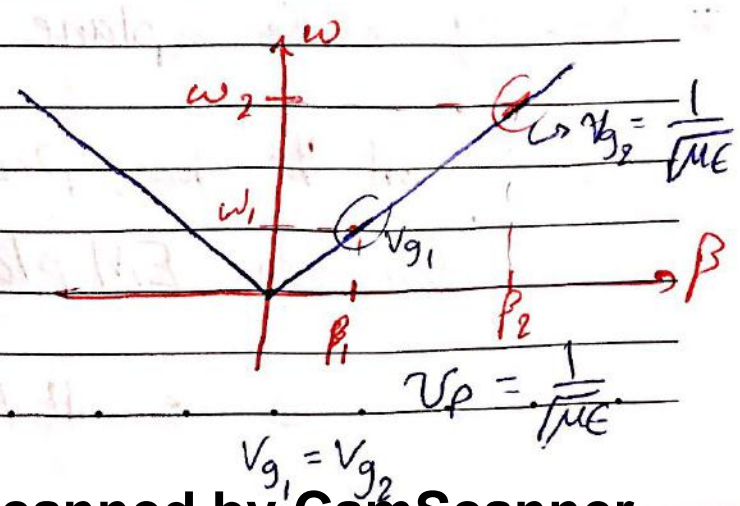 ω
ω₂
v_g₂ = 1/√με
ω₁
v_g₁
β
β₁
β₂
v_p = 1/√με
v_g₁ = v_g₂
canned by CamScanner